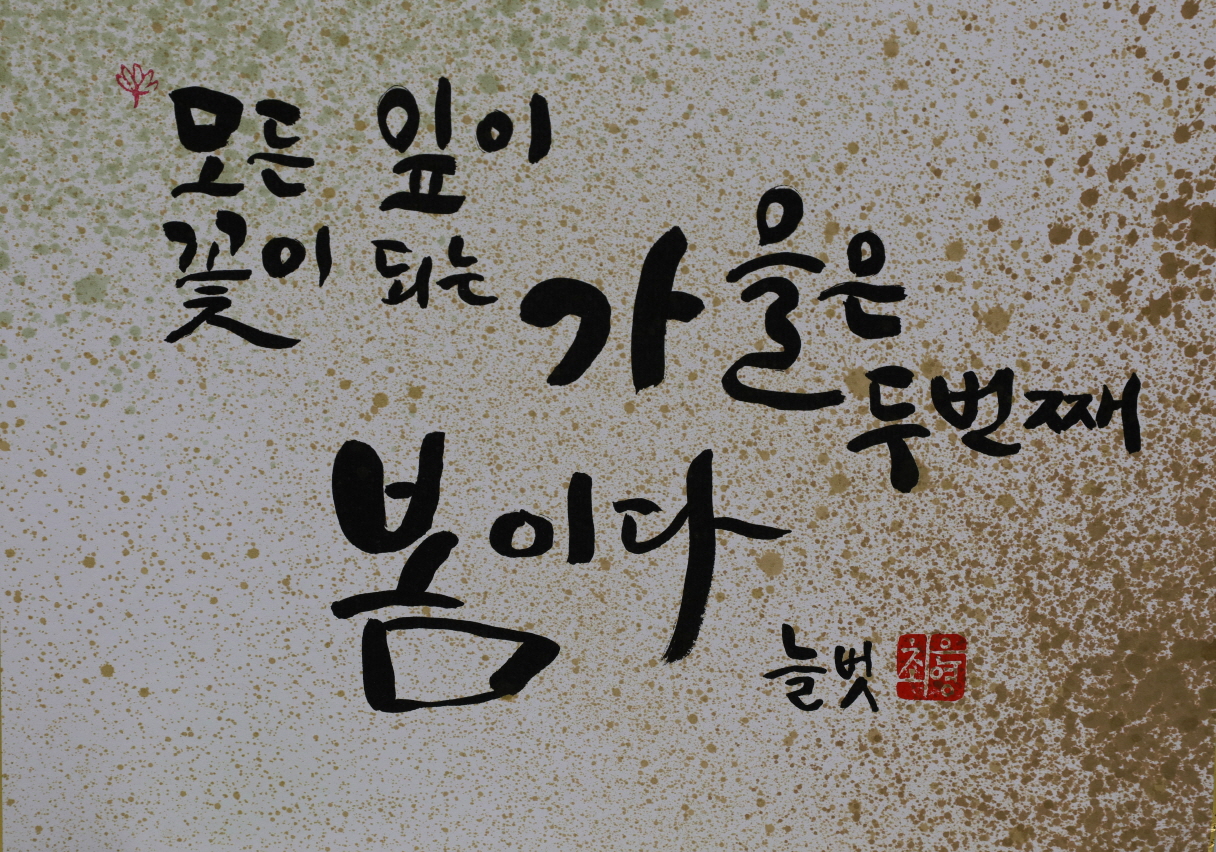 모든 잎이
꽃이 되는
가을은
두번째
봄이다
늘벗
최은영